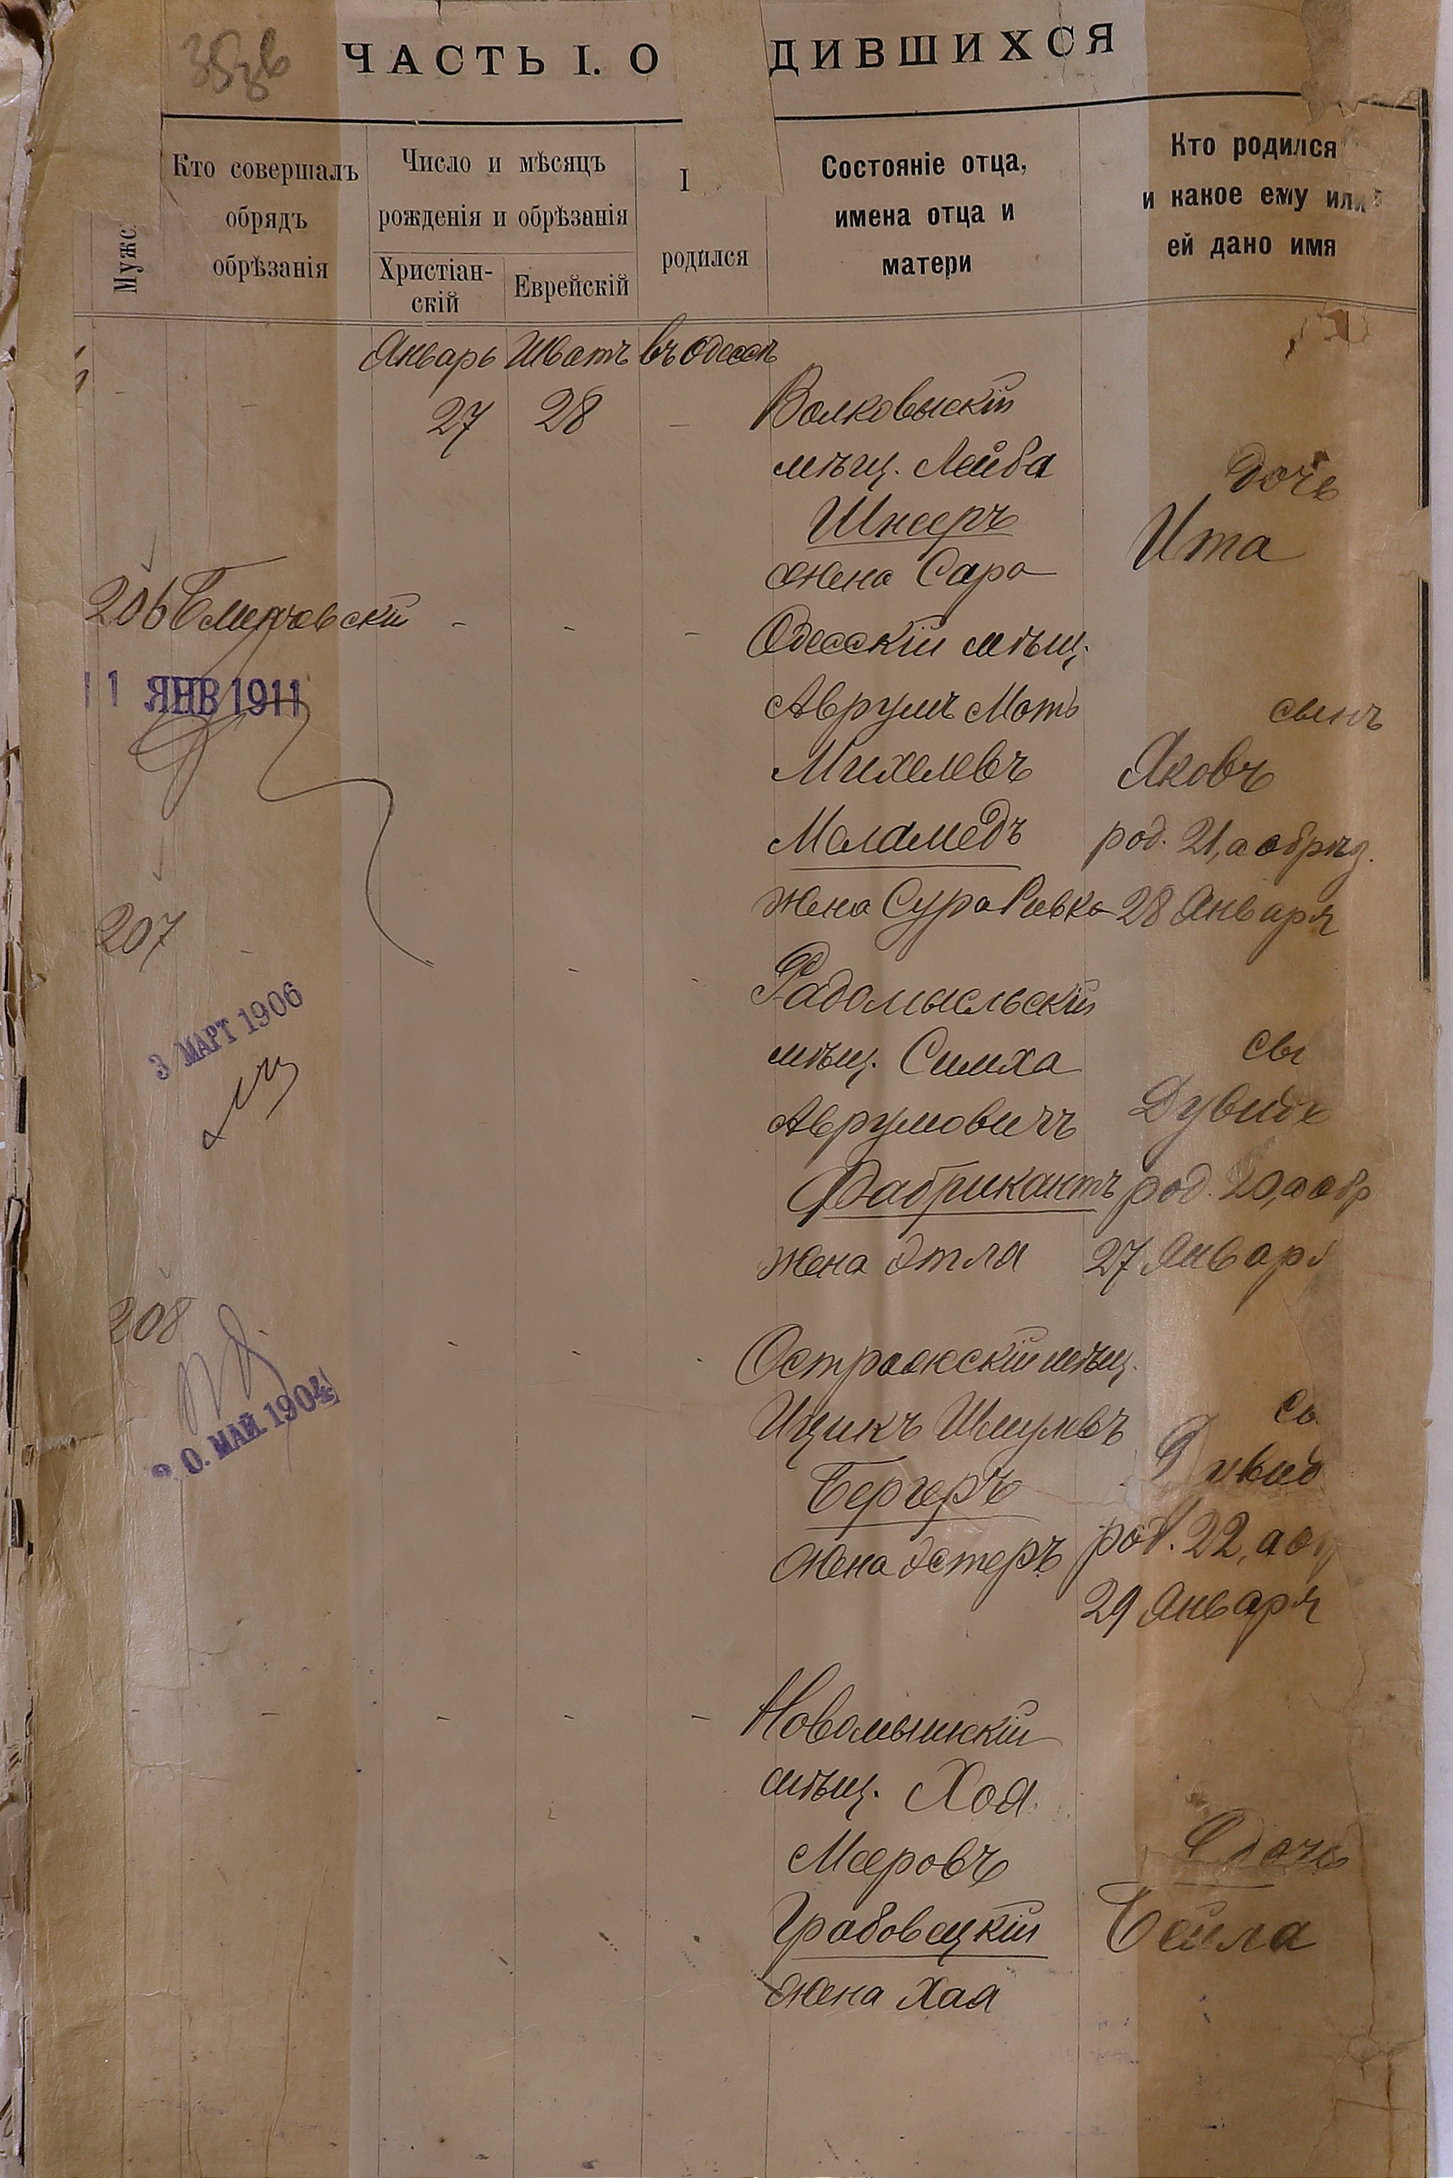 ЧАСТЬ I. О ДИВШИХСЯ
Мужс
Кто совершалъ
обрядъ
обрѣзанія
Число и мѣсяцъ
рожденія и обрѣзанія
Христіан-
скій
Еврейскій
родился
Состояніе отца,
имена отца и
матери
Кто родился
и какое ему или
ей дано имя
Январь Шватъ въ Одессѣ
27 28
Волковыскій
мѣщ. Лейба
Шнееръ
жена Сара
дочь
Ита
206
11 ЯНВ 1911
Одесскій мѣщ.
Аврумъ Моть
Михелевъ
Меламедъ
жена Сура Ривка
сынъ
Яковъ
род. 21, а обрѣз.
28 Января
207
3 МАРТ 1906
Радомысльскій
мѣщ. Симха
Аврумовичъ
Фабрикантъ
жена Этля
сы
Дувидъ
род. 20, а обр
27 Января
208
0. МАЙ. 1904
Острожскій мѣщ.
Ицикъ Шмулевъ
Бергеръ
жена Эстеръ
сы
род. 22, а
29 Января
мѣщ.
Мееровъ
Грабовецкій
жена Хая
дочь
Бейла